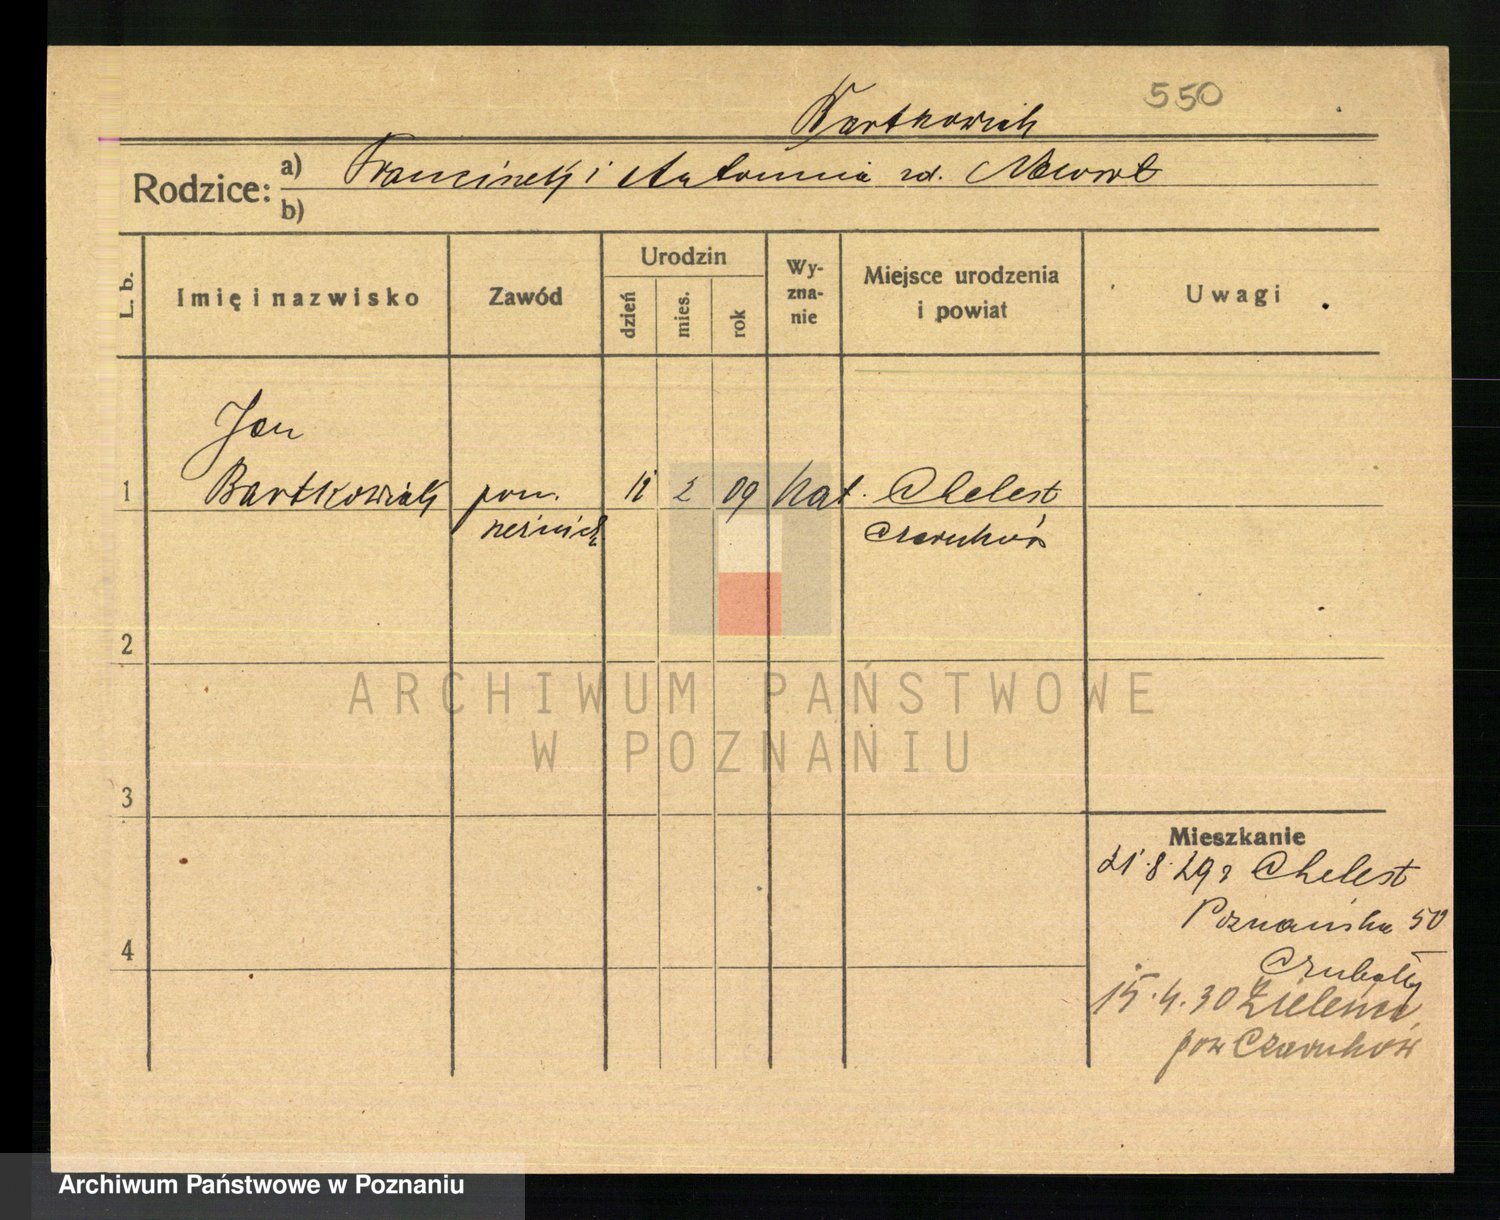 550
Bartkowiak
Rodzice: a) Franciszek i Antonina zd.
b)
L. b.
Imię i nazwisko
Zawód
Urodzin
dzień
mies.
rok
Wy-
zna-
nie
Miejsce urodzenia
i powiat
Uwagi
Jan
1 Bartkowiak pom. 2 09 kat. Chelest
rzeźnick Czarnków
2
3
4
Mieszkanie
21.8.29 r Chelest
Poznańska 50
Czubaty
15.4.30 Zieleniec
pow Czarnków
ARCHIWUM PAŃSTWOWE
W POZNANIU
Archiwum Państwowe w Poznaniu